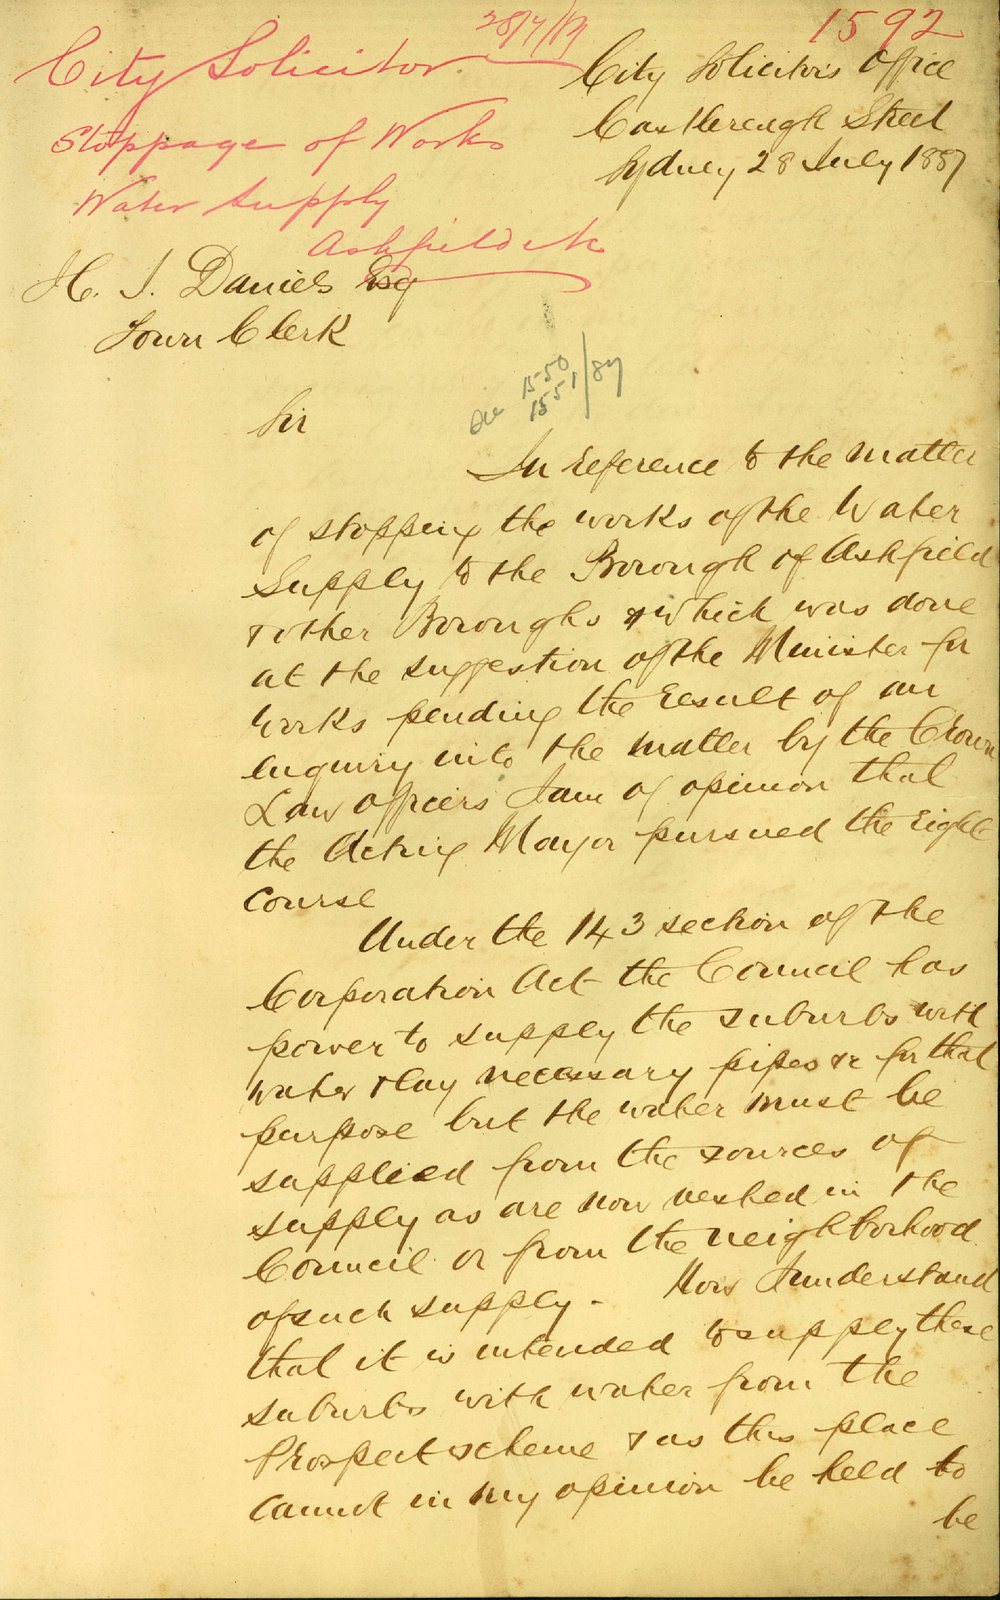 1592
28/7/87
City Solicitor
Stoppage of Works
Water Supply
Ashfield &c
City Solicitor's Office
Castlereagh Street
Sydney 28 July 1887
H. J. Daniels Esq
Town Clerk
See 1550
1551/87
Sir
In reference to the matter
of stopping the works of the Water
Supply to the Borough of Ashfield
& other Boroughs & which was done
at the suggestion of the Minister for
Works pending the result of an
enquiry into the matter by the Crown
Law officers I am of opinion that
the Acting Mayor pursued the right
course
Under the 143 section of the
Corporation Act the Council has
power to supply the suburbs with
water & lay necessary pipes &c for that
purpose but the water must be
supplied from the sources of
supply as are now vested in the
Council or from the neighborhood
of such supply - Now I understand
that it is intended to supply these
suburbs with water from the
Prospect scheme & as this place
cannot in my opinion be held to
be